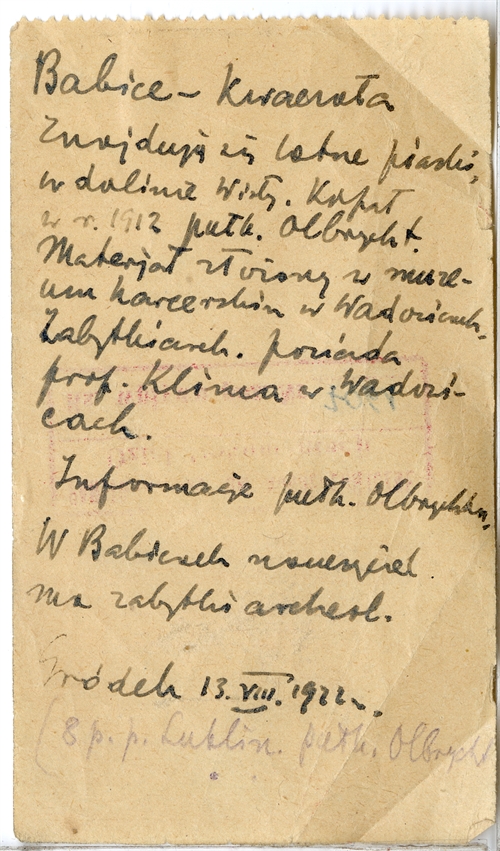 Babice – Kwaczała
Znajdują się lotne piaski,
w dolinie Wisły. Kopał
w r. 1912 pułk. Olbrycht.
Materjał złożony w muze-
um harcerskim w Wadowicach.
Zabytki arch. posiada
prof. Klima w Wadowi-
cach.
Informacje pułk. Olbrychta.
W Babicach nauczyciel
ma zabytki archeol.
Gródek 13.VIII.1922 r.
(8 p. p. Lublin. pułk. Olbrycht